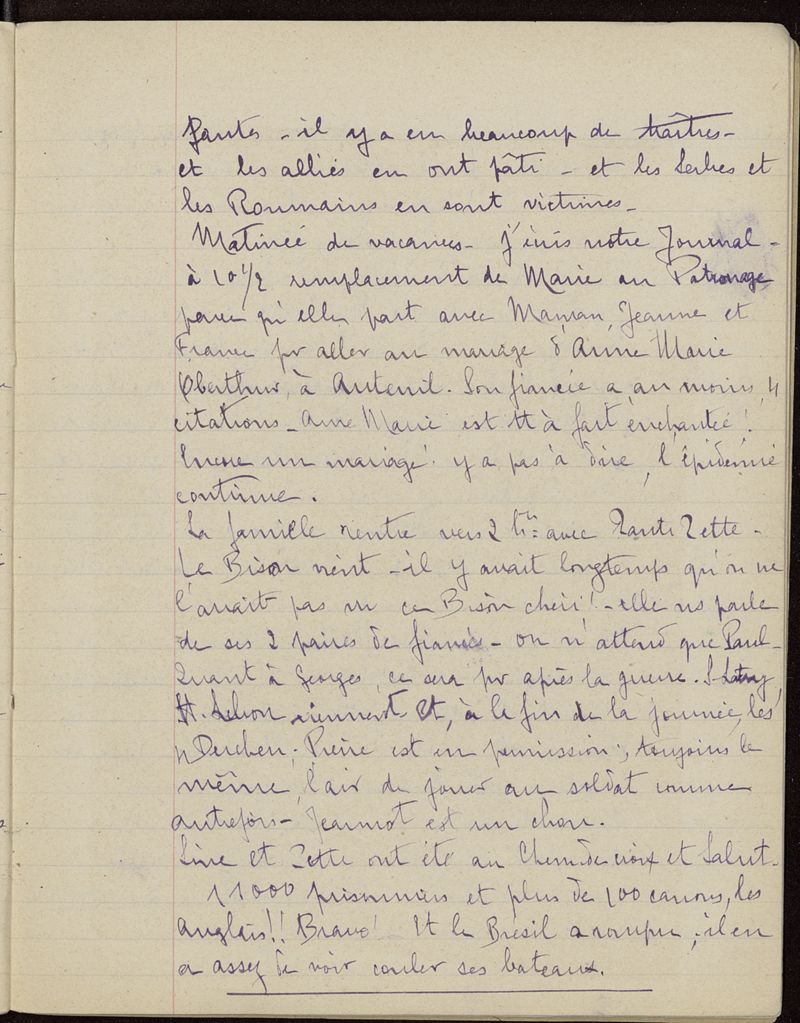 fautes - il y a eu beaucoup de traîtres -
et les alliés en ont pâti - et les Serbes et
les Roumains en sont victimes -
Matinée de vacances - J'écris notre Journal -
à 10 1/2 remplacement de Marie au Patronage
parce qu'elle part avec Maman, Jeanne et
France pr aller au mariage d'Anne Marie
Oberthur, à Auteuil. Son fiancée a au moins 4
citations - Anne Marie est tt à fait enchantée !
Encore un mariage ! y a pas à dire, l'épidémie
continue.
La famille rentre vers 2 h avec Tante Zette -
Le Bison vient - il y avait longtemps qu'on ne
l'avait pas vu ce Bison chéri ! - elle ns parle
de ses 2 paires de fiancés - on n'attend que Paul -
Quant à Georges, ce sera pr après la guerre.
viennent Et, à la fin de la journée, les
Pierre est en permission ; toujours le
même, l'air de jouer au soldat comme
autrefois - Jeannot est un chou.
Line et Zette ont été au Chemin de croix et Salut -
11000 prisonniers et plus de 100 canons, les
anglais !! Bravo ! Et le Brésil a rompu ; il en
a assez de voir couler ses bateaux.